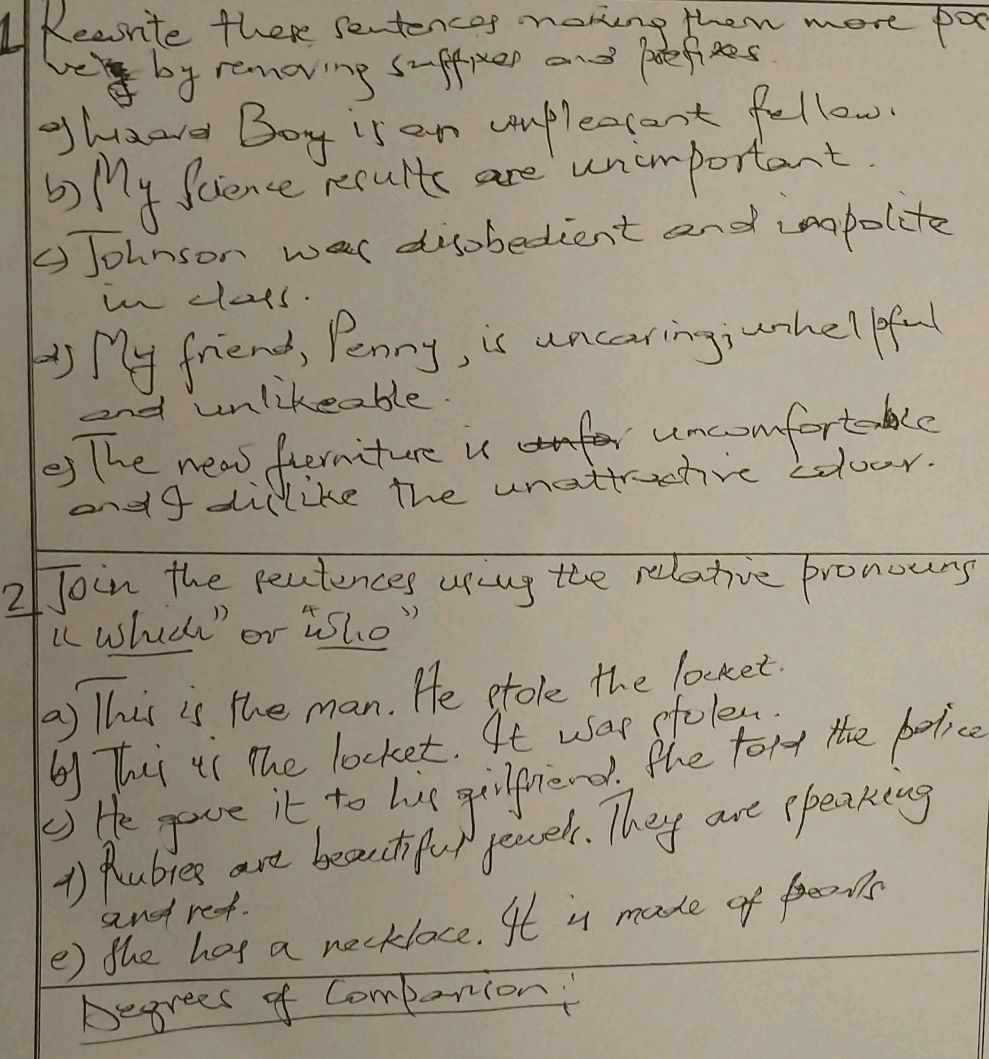 1 Rewrite these sentences making them more pos
by removing suffixes and prefixes.
a) Lizard Boy is an unpleasant fellow.
b) My Science results are unimportant.
c) Johnson was disobedient and impolite
in class.
d) My friend, Penny, is uncaring; unhelpful
and unlikeable.
e) The new furniture is uncomfortable
and I dislike the unattractive colour.
2 Join the sentences using the relative pronouns
"which" or "who"
a) This is the man. He stole the locket.
b) This is the locket. It was stolen.
c) He gave it to his girlfriend. She told the police
d) Rubies are beautiful jewels. They are speaking
and red.
e) She has a necklace. It is made of pearls
Degrees of Comparison: